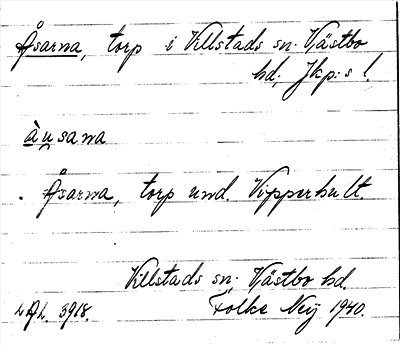 Åsarna, torp i Villstads sn. Västbo
hd, Jkp:s l.
àu̯sana
. Åsarna, torp und. Vipperhult.
Villstads sn. Västbo hd
LAL. 3918. Folke Neij 1940.